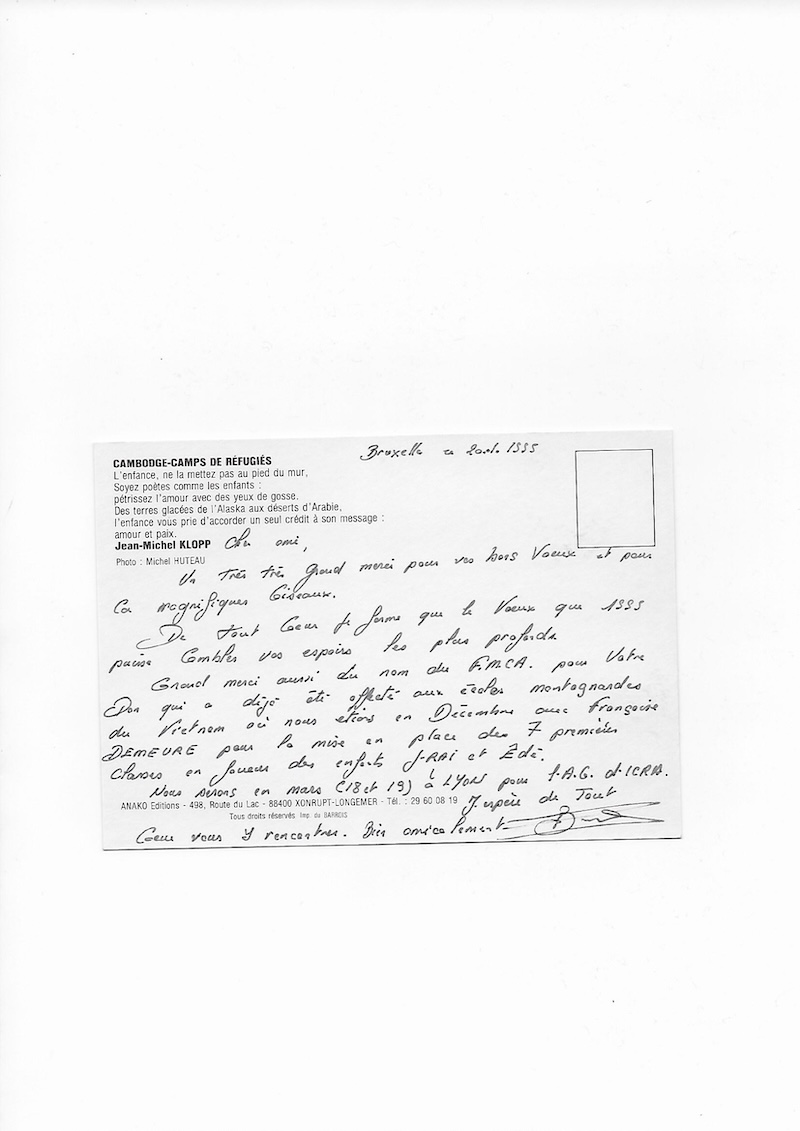 Bruxelles 20.1.1995
CAMBODGE-CAMPS DE RÉFUGIÉS
L'enfance, ne la mettez pas au pied du mur,
Soyez poètes comme les enfants :
pétrissez l'amour avec des yeux de gosse.
Des terres glacées de l'Alaska aux déserts d'Arabie,
l'enfance vous prie d'accorder un seul crédit à son message :
amour et paix.
Jean-Michel KLOPP
Photo : Michel HUTEAU
Cher ami,
Un très très grand merci pour vos bons Voeux et pour
Ces magnifiques Ciseaux.
De tout Coeur je forme que le Voeux que 1995
puisse Combler vos espoirs les plus profonds
Grand merci aussi du nom du F.M.C.A. pour Votre
Don qui a déjà été affecté aux écoles montagnardes
du Vietnam où nous étions en Décembre avec Françoise
DEMEURE pour la mise en place des 7 premières
Classes en faveur des enfants J-RAI et Edê.
Nous serons en mars (18 et 19) à LYON pour l'A.G. d'ICRA.
J'espère de Tout
ANAKO Editions - 498, Route du Lac - 88400 XONRUPT-LONGEMER - Tél. : 29 60 08 19
Tous droits réservés Imp. du BARROIS
Coeur vous y rencontrer. Bien amicalement